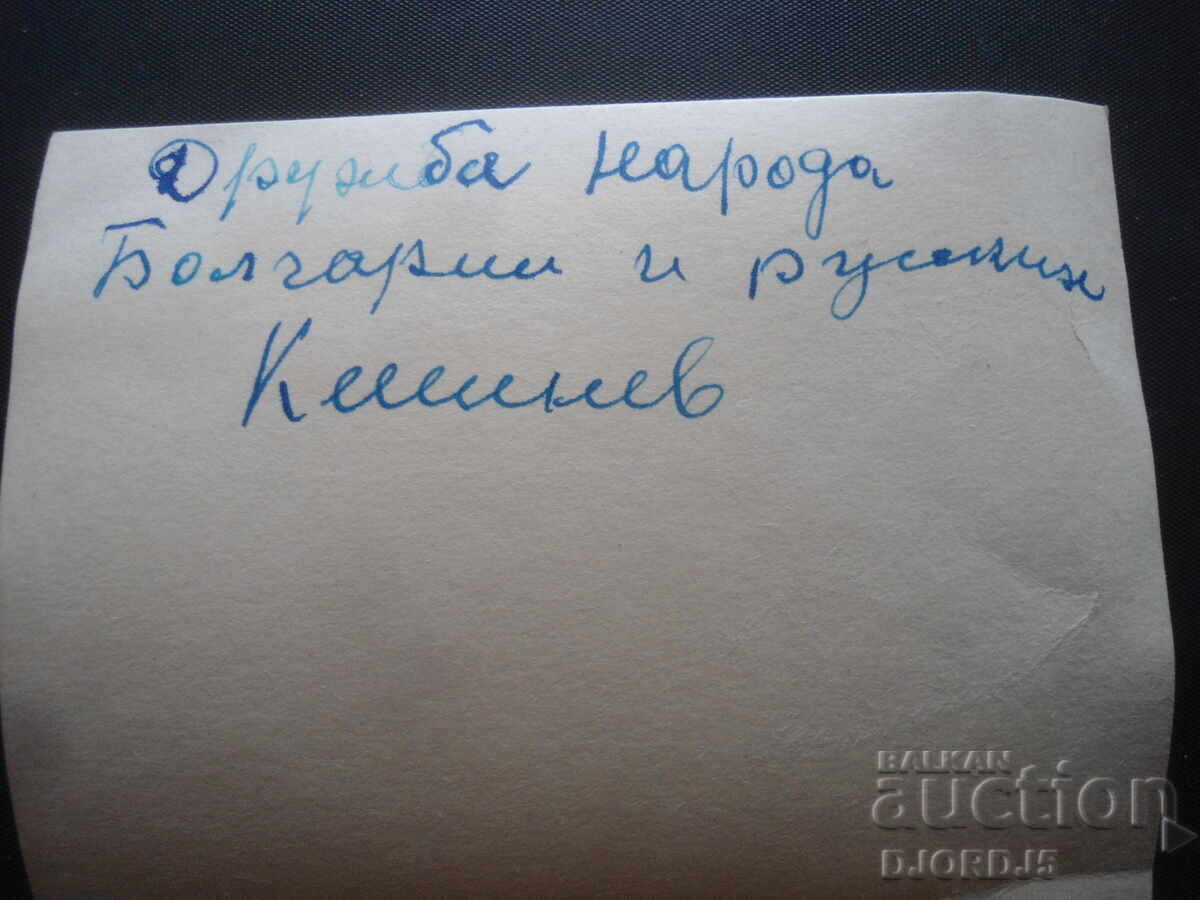 Дружба народа
Болгарии и русских
Кишинев
BALKAN
auction
DJORDJ5